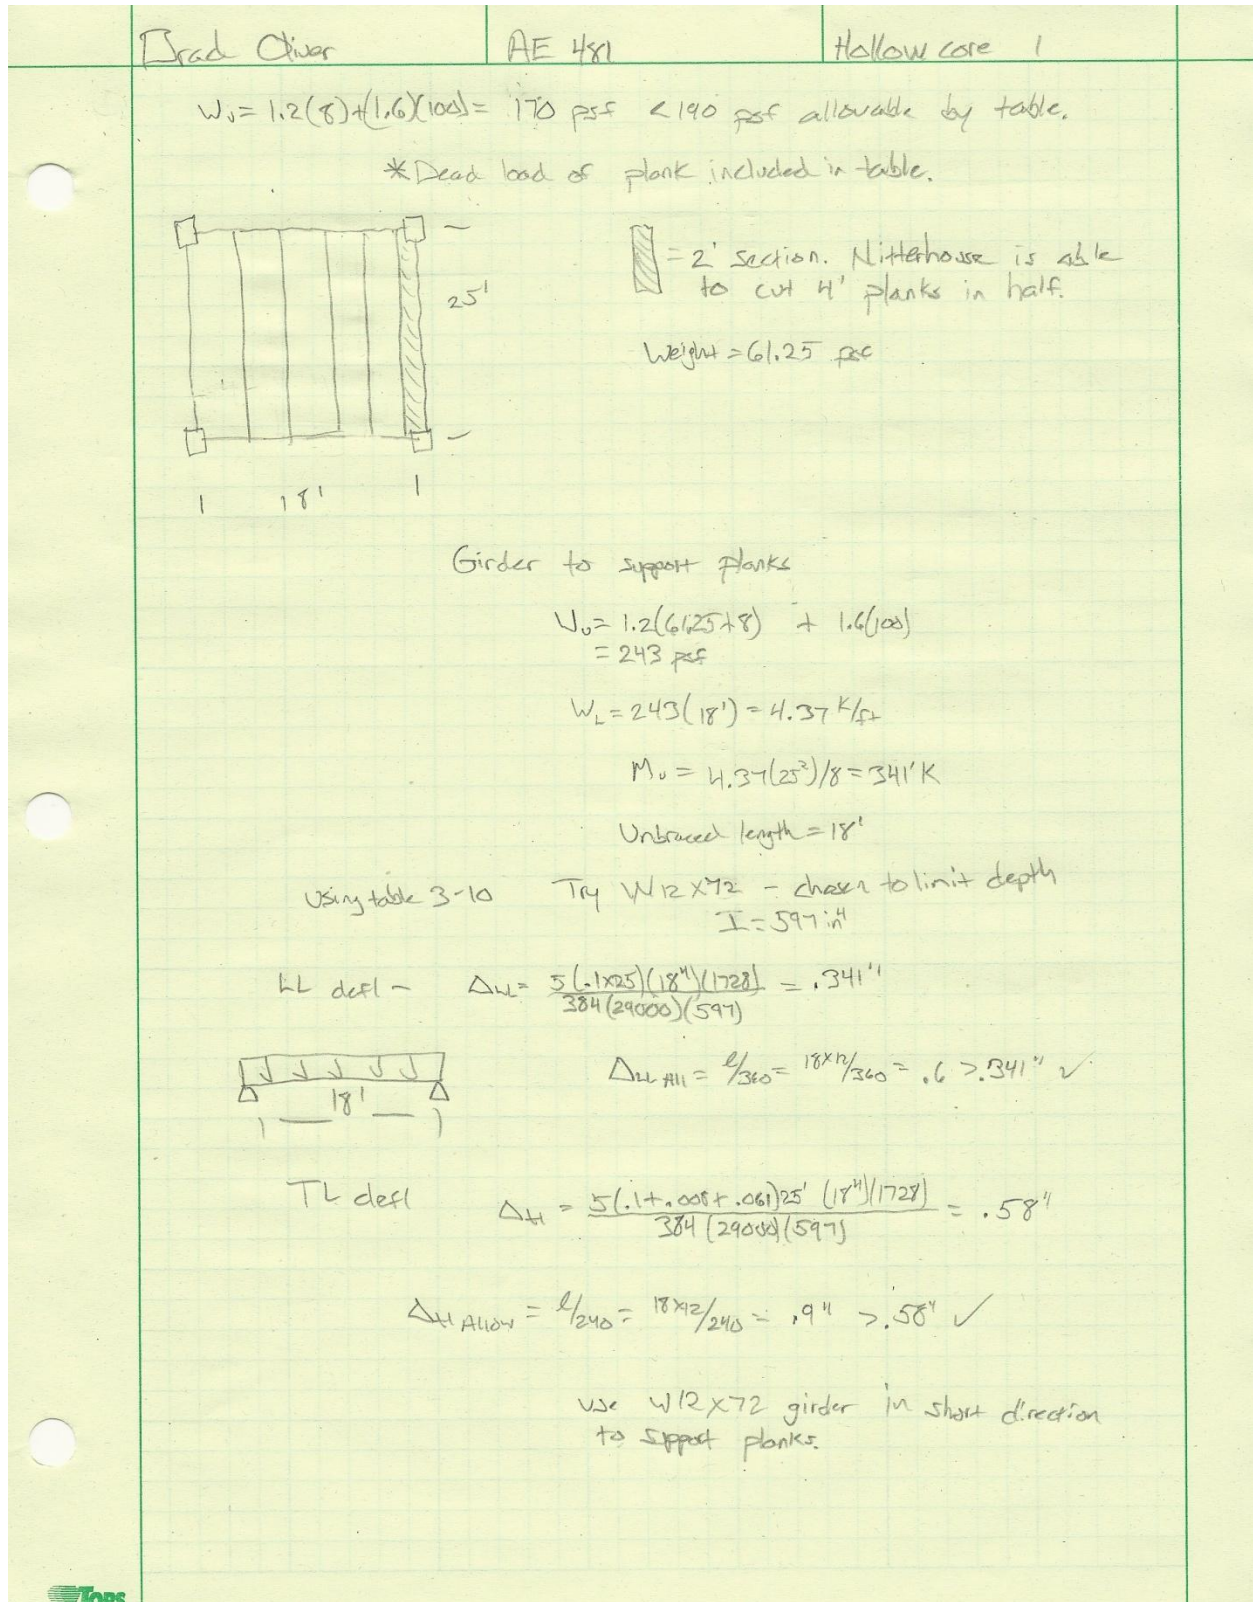 Brad Oliver AE 481 Hollow core 1
Wu = 1.2(8)+(1.6)(100) = 170 psf < 190 psf allowable by table.
*Dead load of plank included in table.
= 2' section. Nitterhouse is able
to cut 4' planks in half.
25'
Weight = 61.25 psf
18'
Girder to support planks
Wu = 1.2(61.25+8) + 1.6(100)
= 243 psf
WL = 243(18') = 4.37 k/ft
Mu = 4.37(25²)/8 = 341'K
Unbraced length = 18'
Using table 3-10 Try W12X72 - chosen to limit depth
I = 597 in⁴
LL defl - ΔLL = 5(.1x25)(18⁴)(1728) / 384(29000)(597) = .341"
ΔLL All = l/360 = 18x12/360 = .6 > .341" ✓
18'
TL defl Δtl = 5(.1+.008+.061)25' (18⁴)(1728) / 384(29000)(597) = .58"
Δtl Allow = l/240 = 18x12/240 = .9" > .58" ✓
Use W12X72 girder in short direction
to support planks.
TOPS